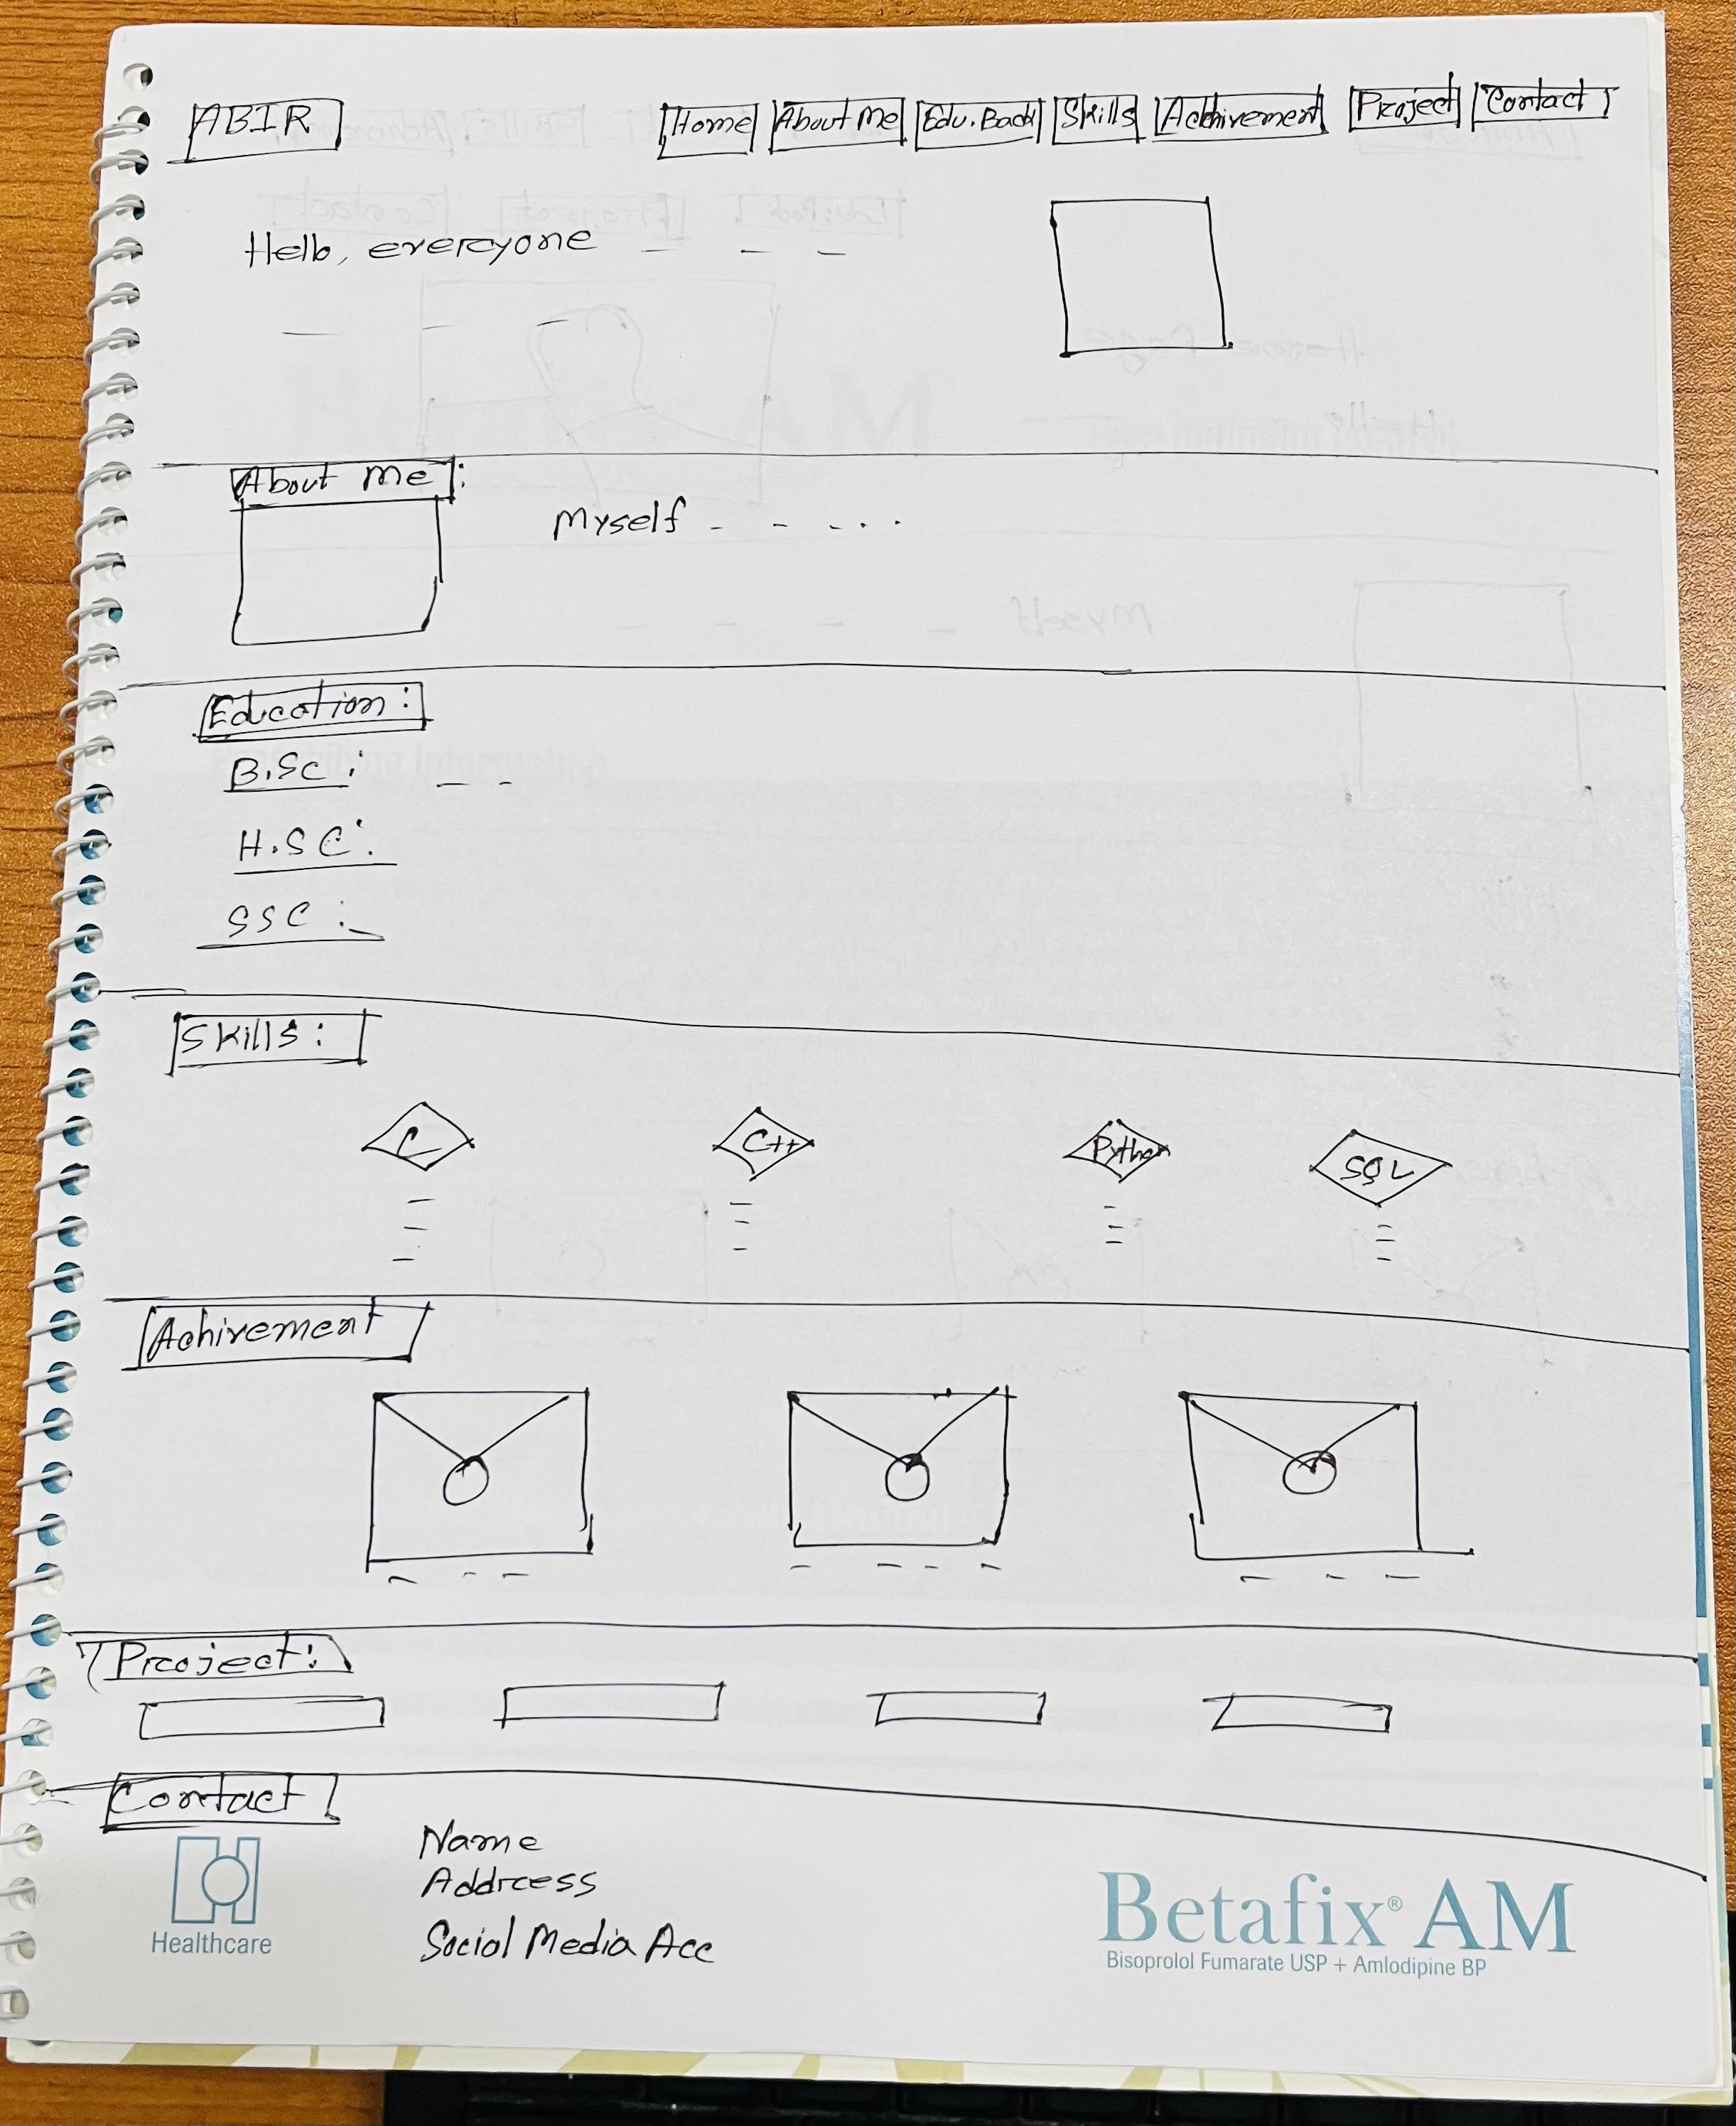 ABIR Home About Me Edu. Back Skills Achivement Project Contact
Hello, everyone
About Me:
Myself
Education:
B.Sc:
H.S.C:
SSC:
Skills:
C C++ Python SQL
Achivement
Project:
Contact
Name
Address
Social Media Acc
Healthcare
Betafix® AM
Bisoprolol Fumarate USP + Amlodipine BP